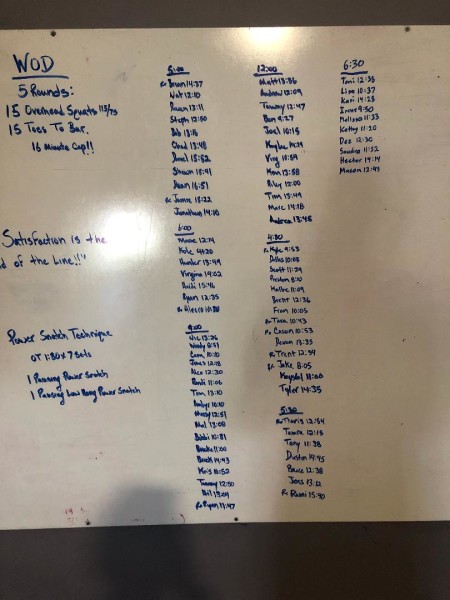 WOD
5 Rounds:
15 Overhead Squats 115/75
15 Toes To Bar.
16 Minute Cap!!
Satisfaction is the
d of the Line!!"
Power Snatch Technique
OT 1:30 x 7 Sets
1 Pausing Power Snatch
1 Pausing Low Hang Power Snatch
5:00
14:37
Nat 12:10
13:11
Steph 12:50
Bob 13:15
Chad 13:48
15:52
Shawn 15:41
16:51
Rx Jamie 13:22
Jonathan 14:10
6:00
12:14
Kyle
Hunter 13:49
Virginia 14:02
15:46
Ryan 12:35
9:00
Nic 13:26
Wendy 8:57
Cam 10:10
James 12:18
Alex 12:30
11:06
Tim 13:10
10:10
12:57
Mel 13:08
Bobbi 10:51
Brooke 11:00
14:43
Kris 10:52
Tammy 12:50
Bil 13:04
Rx Ryan 11:47
12:00
Matt 13:56
Andrew 12:09
Tammy 12:47
Ben 9:27
Joel 10:15
Kayla 14:29
10:59
Ken 12:58
Riley 12:00
Tim 13:49
Marc 14:18
Andrea 13:45
4:30
Rx Kyle 9:53
Dallas 10:05
Scott 11:29
Preston 8:10
11:09
Brent 12:36
Fran 10:05
Rx Tara 10:43
Rx Cason 10:53
Devon 13:33
Rx Trent 12:54
Rx Jake 8:05
Krystal 11:00
Tyler 14:35
5:30
Rx Travis 12:54
Tamara 12:15
Tony 11:38
Dustin 14:45
Bruce 12:38
Jess 13:12
Rx Rami 15:40
6:30
Toni 12:35
Lisa 10:37
Kari 14:28
Irene 9:50
Melissa 11:33
Kathy 11:20
Dez 12:30
Sandra 11:32
Hector 14:14
Mason 12:43